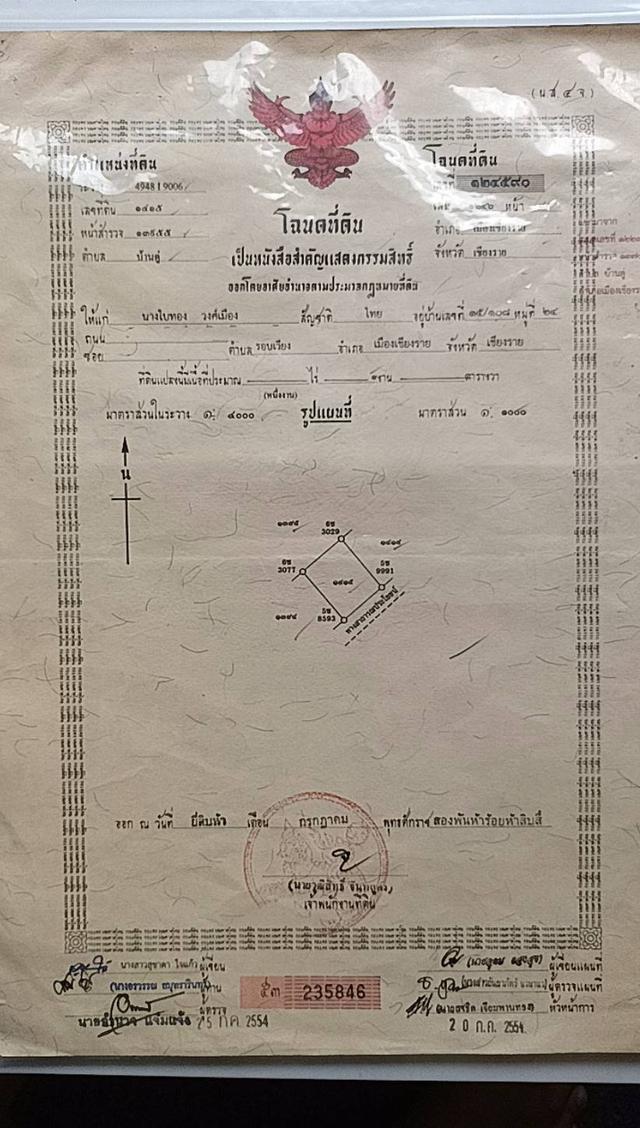 (น.ส. ๔ จ.)
ตำแหน่งที่ดิน
โฉนดที่ดิน
4948 I 9006
เลขที่ ๑๒๔๕๙๐
เลขที่ดิน ๑๔๑๕
หน้า
หน้าสำรวจ ๑๓๙๕๕
อำเภอ เมืองเชียงราย
ตำบล บ้านดู่
จังหวัด เชียงราย
โฉนดที่ดิน
เป็นหนังสือสำคัญแสดงกรรมสิทธิ์
ออกโดยอาศัยอำนาจตามประมวลกฎหมายที่ดิน
ให้แก่ นางใบทอง วงศ์เมือง สัญชาติ ไทย อยู่บ้านเลขที่ ๑๕/๑๐๘ หมู่ที่ ๒๔
ถนน
ซอย ตำบล รอบเวียง อำเภอ เมืองเชียงราย จังหวัด เชียงราย
ที่ดินแปลงนี้มีเนื้อที่ประมาณ ไร่ งาน ตารางวา
(หนึ่งงาน)
มาตราส่วนในระวาง ๑: ๔๐๐๐ รูปแผนที่ มาตราส่วน ๑: ๑๐๐๐
น
๑๓๙๕
6ซ
3029
๑๔๑๔
6ซ
3077
5ซ
9991
๑๔๑๕
๑๓๙๔
5ซ
8593
ทางสาธารณประโยชน์
ออก ณ วันที่ ยี่สิบห้า เดือน กรกฎาคม พุทธศักราช สองพันห้าร้อยห้าสิบสี่
เจ้าพนักงานที่ดิน
นางสาวสุชาดา ใจแก้ว ผู้เขียน
ผู้เขียนแผนที่
ผู้ตรวจแผนที่
ผู้ตรวจ
หัวหน้าการ
๕๓ 235846
25 ก.ค. 2554
20 ก.ค. 2554